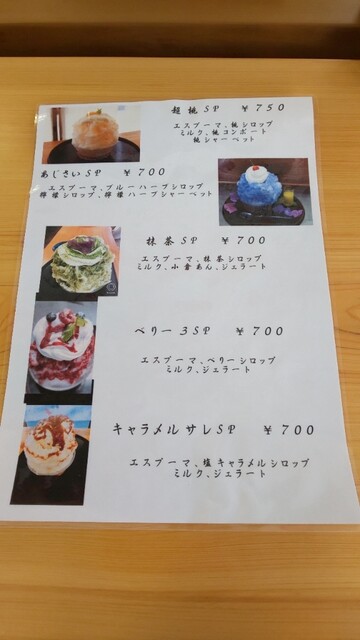 超桃SP ￥750
エスプーマ、桃シロップ
ミルク、桃コンポート
桃シャーベット
あじさいSP ￥700
エスプーマ、ブルーハーブシロップ
檸檬シロップ、檸檬ハーブシャーベット
抹茶SP ￥700
エスプーマ、抹茶シロップ
ミルク、小倉あん、ジェラート
ベリー３SP ￥700
エスプーマ、ベリーシロップ
ミルク、ジェラート
キャラメルサレSP ￥700
エスプーマ、塩キャラメルシロップ
ミルク、ジェラート